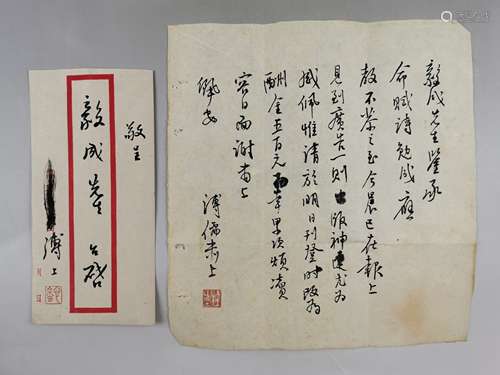 毅成先生鑒承
命賦詩勉成應
教不榮之至今晨已在報上
見到廣告一則出版神速尤為
感佩惟請於明日刊登時改為
酬金五百元 單次煩瀆
容日面謝肅上
佩安
溥儒素上
敬呈
毅成先生台啓
溥上
月日